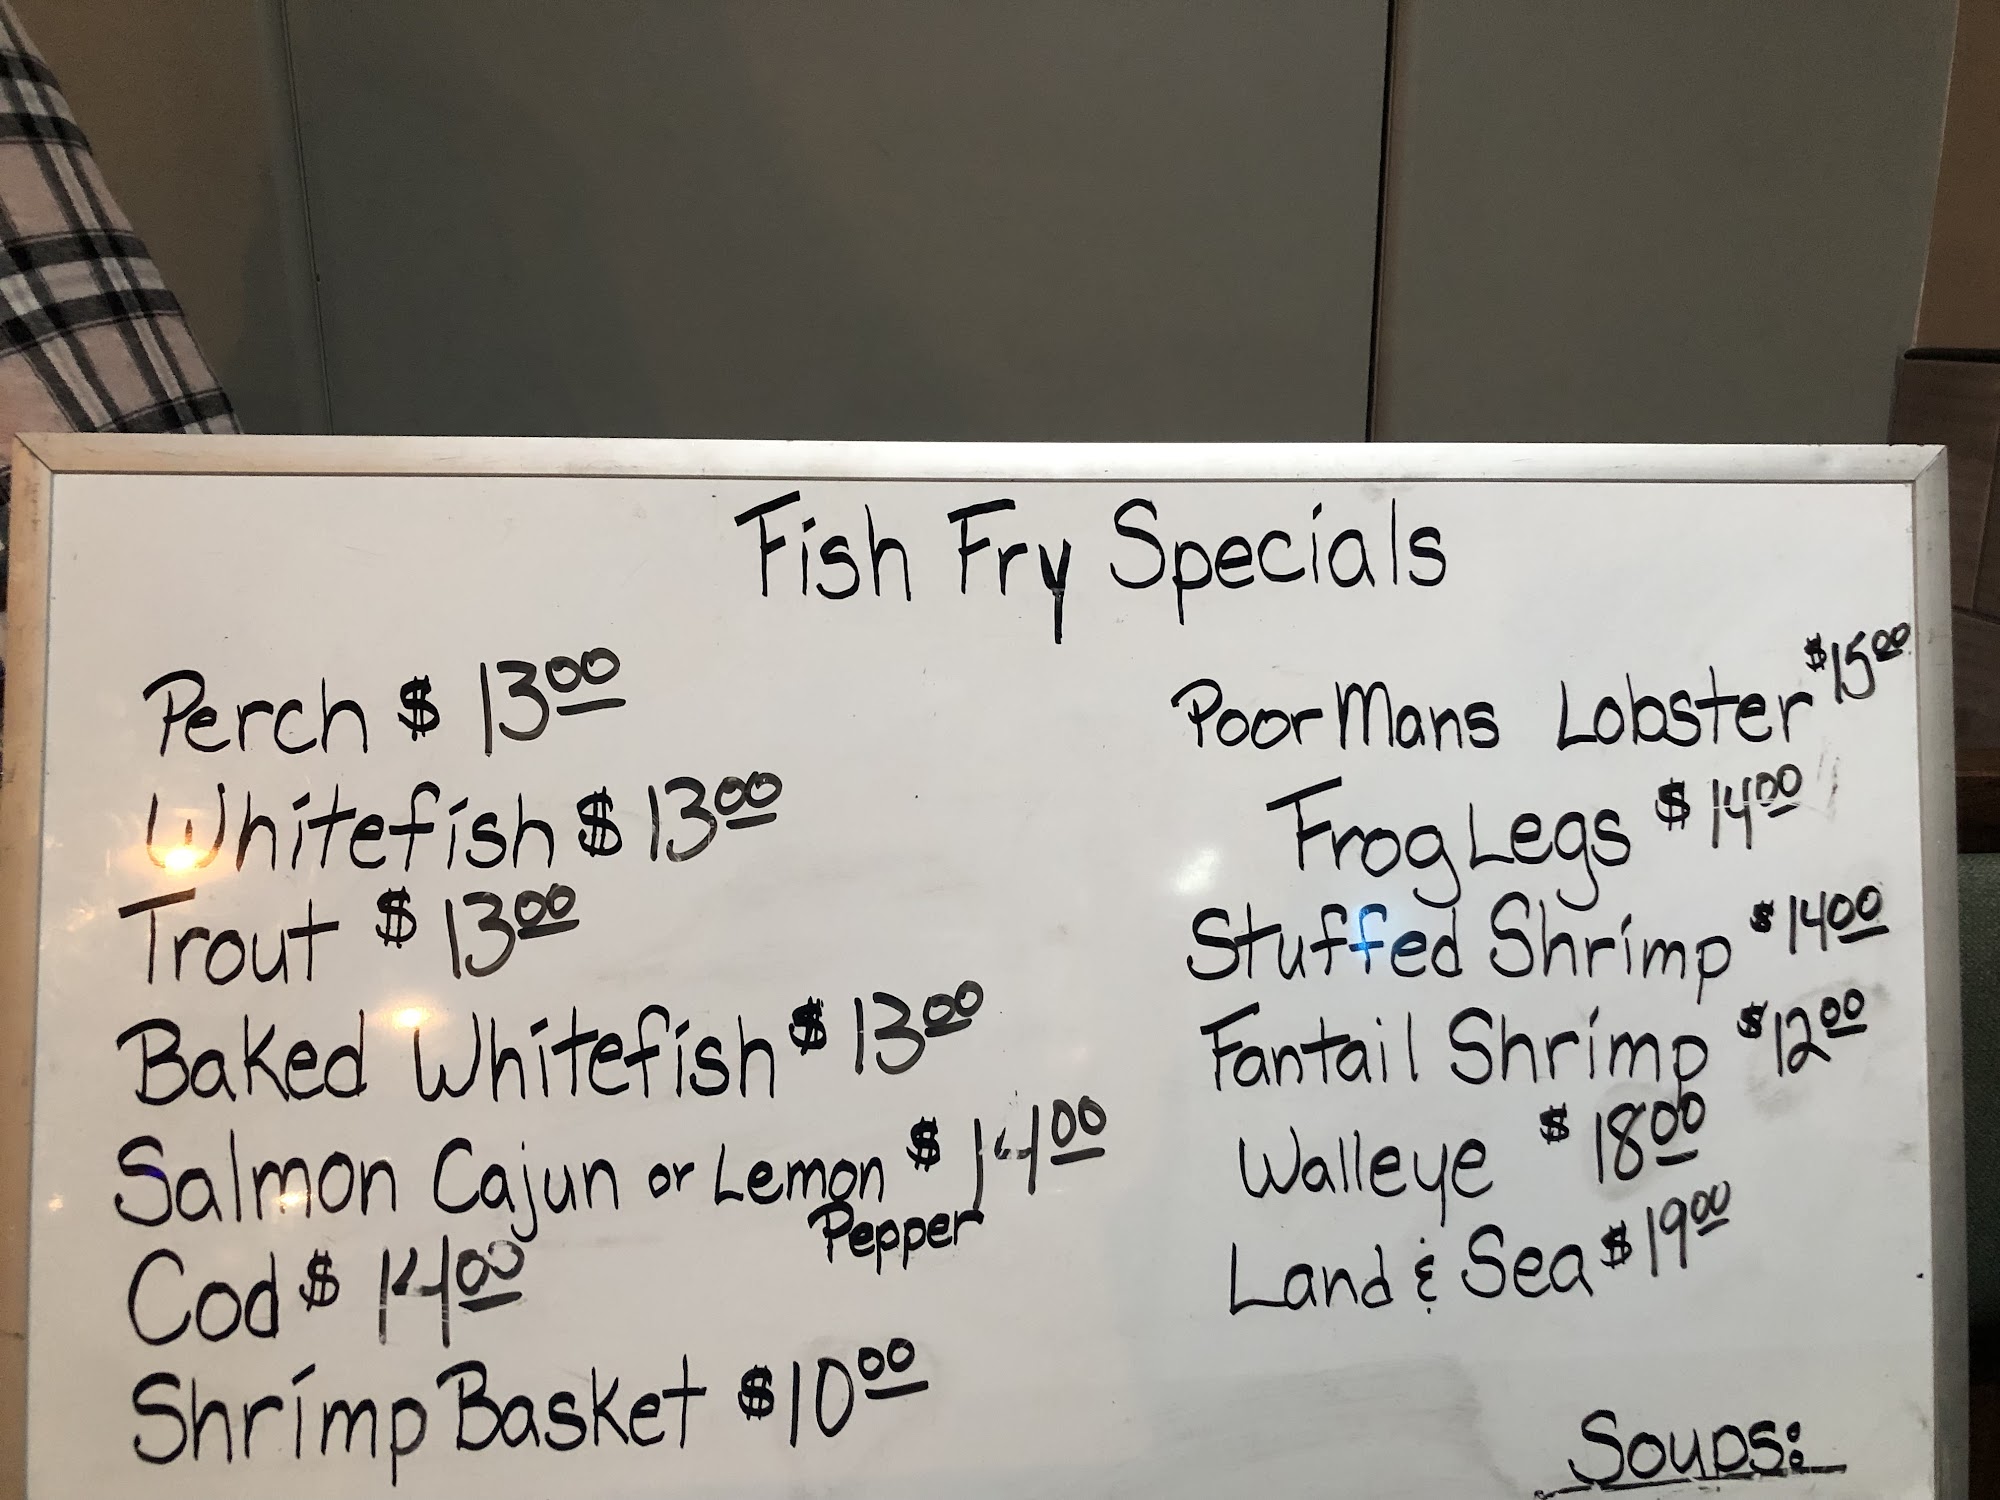 Fish Fry Specials
Perch $ 13.00
Whitefish $ 13.00
Trout $ 13.00
Baked Whitefish $ 13.00
Salmon Cajun or Lemon Pepper $ 14.00
Cod $ 14.00
Shrimp Basket $10.00
Poor Mans Lobster $15.00
Frog Legs $ 14.00
Stuffed Shrimp $14.00
Fantail Shrimp $12.00
Walleye $ 18.00
Land & Sea $ 19.00
Soups: